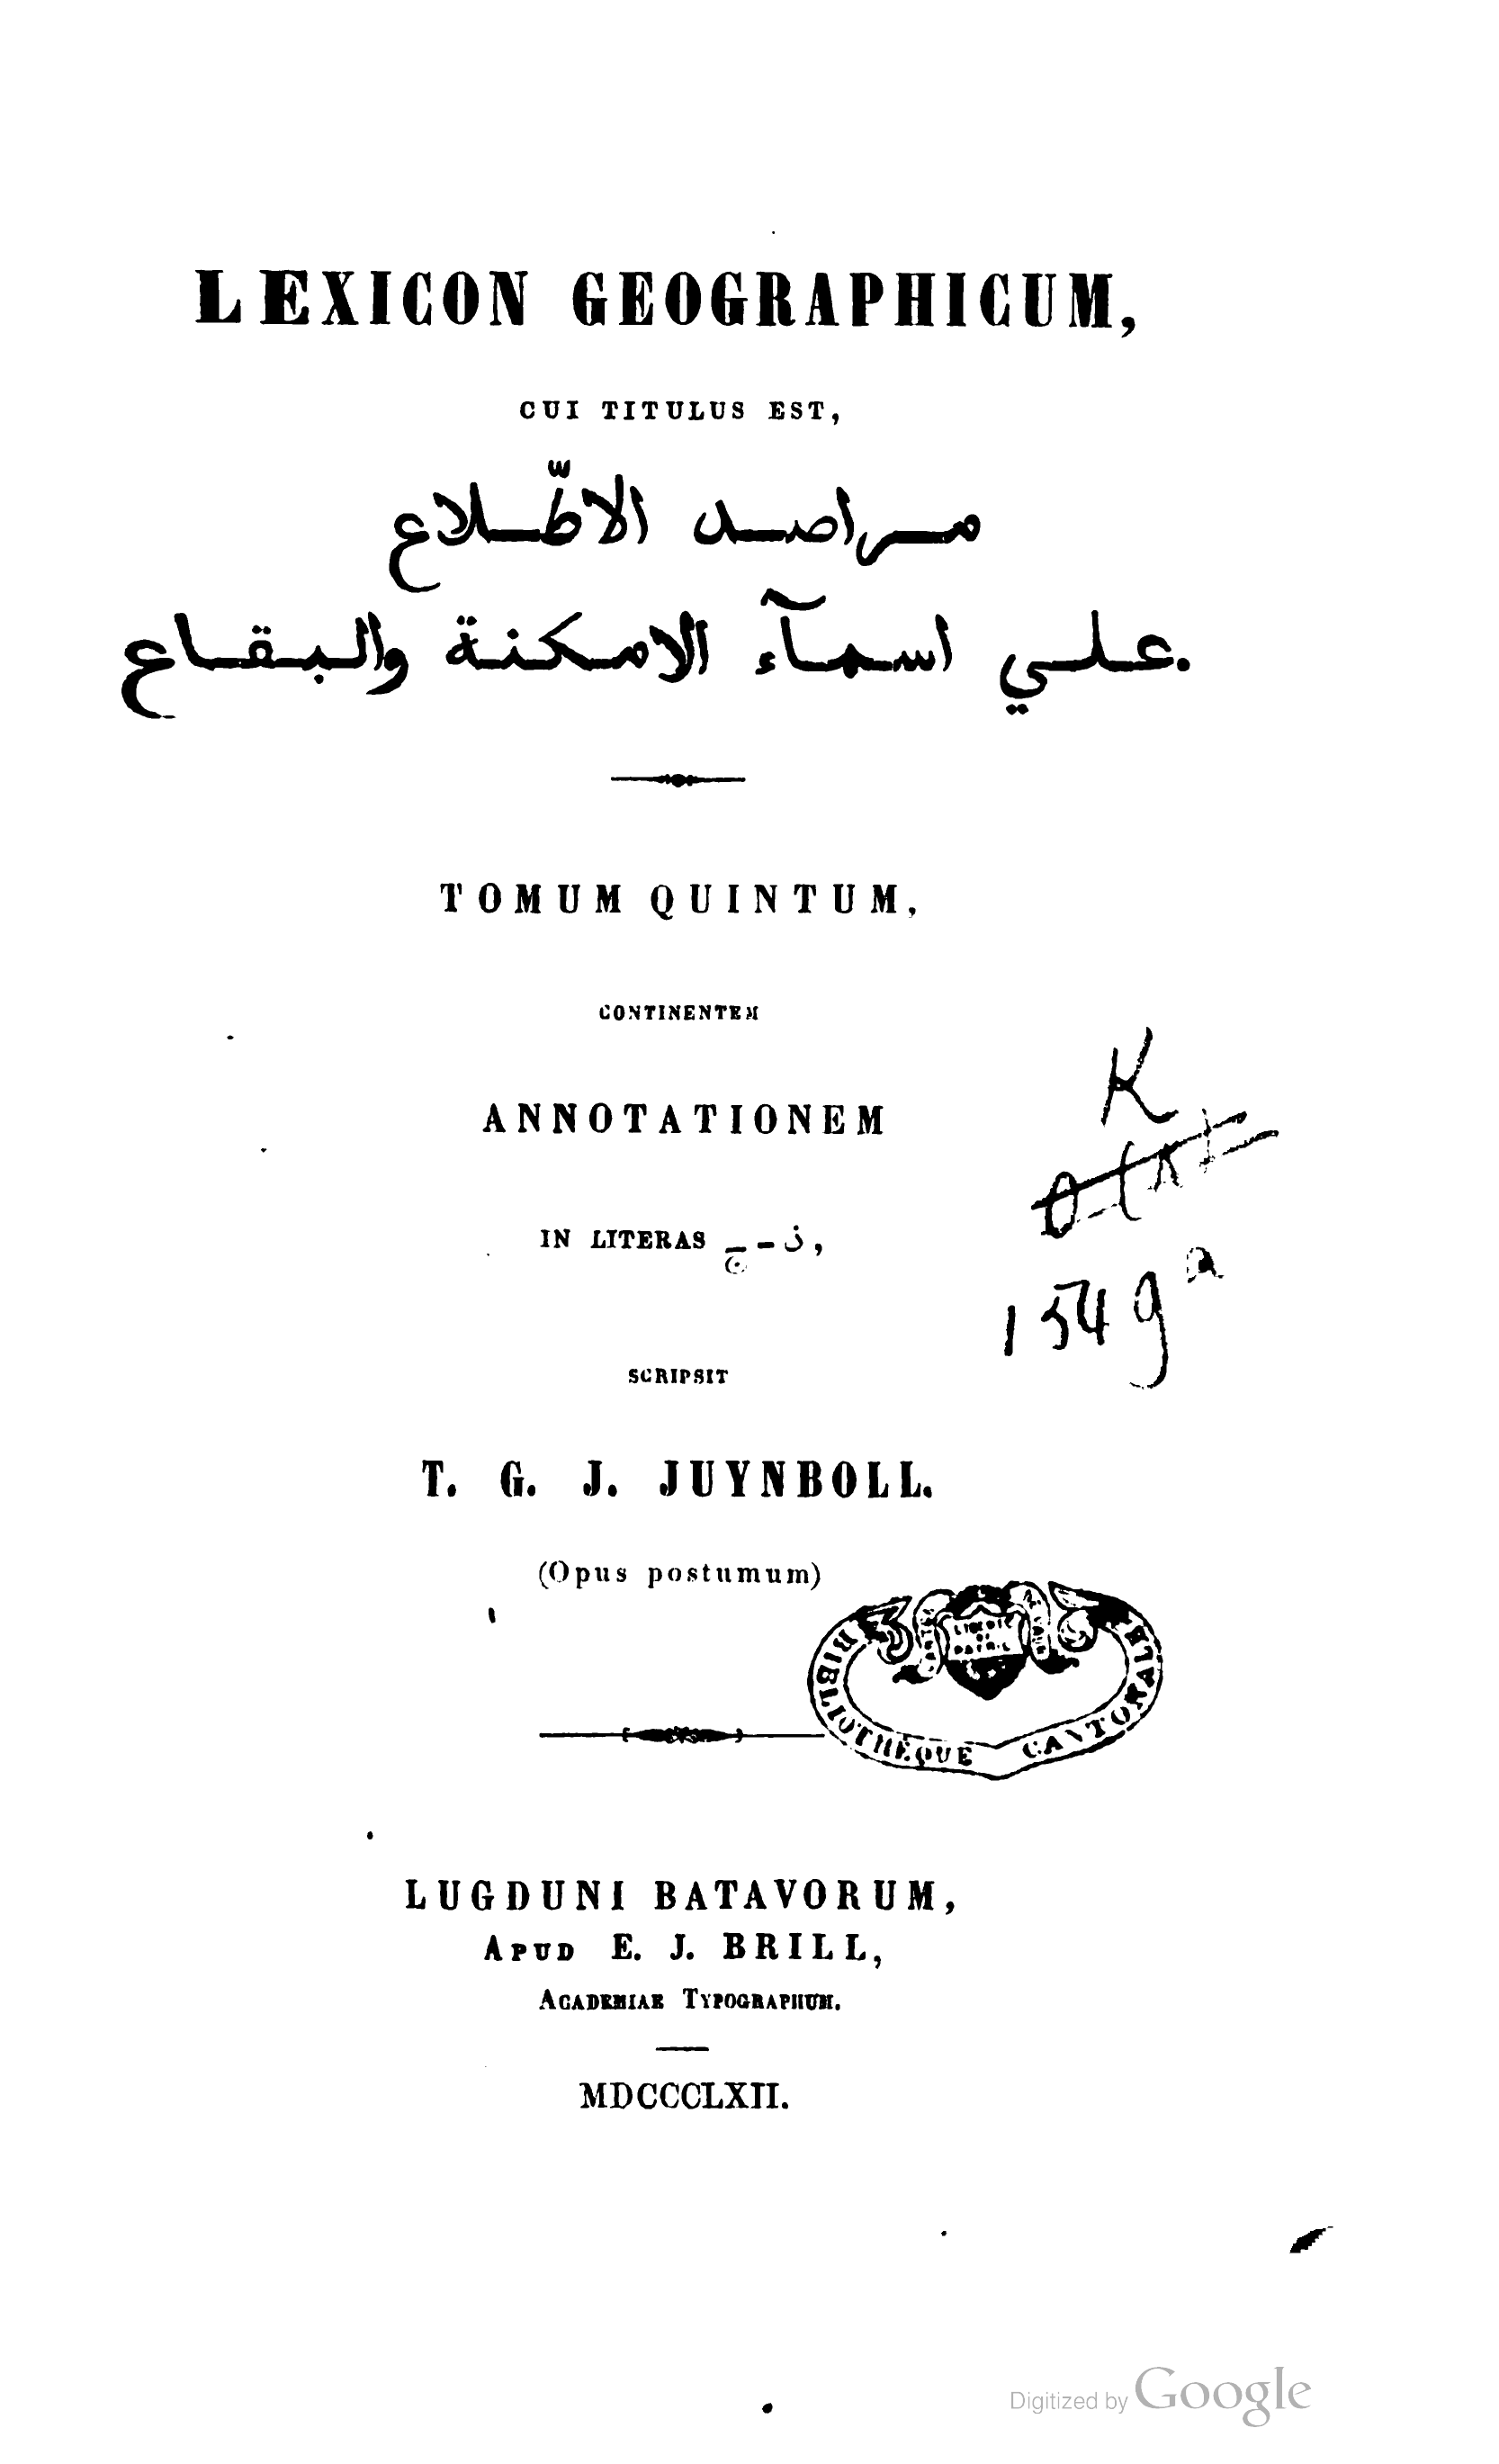 LEXICON GEOGRAPHICUM,
CUI TITULUS EST,
مراصد الاطّلاع
علي اسمآء الامكنة والبقاع.
TOMUM QUINTUM,
CONTINENTEM
ANNOTATIONEM
K
IN LITERAS ج – ذ,
1549 a
SCRIPSIT
T. G. J. JUYNBOLL.
(Opus postumum)
LIBERTÉ ET PATRIE
BIBLIOTHÈQUE CANTONALE
LUGDUNI BATAVORUM,
APUD E. J. BRILL,
ACADEMIAE TYPOGRAPHUM.
MDCCCLXII.
Digitized by Google